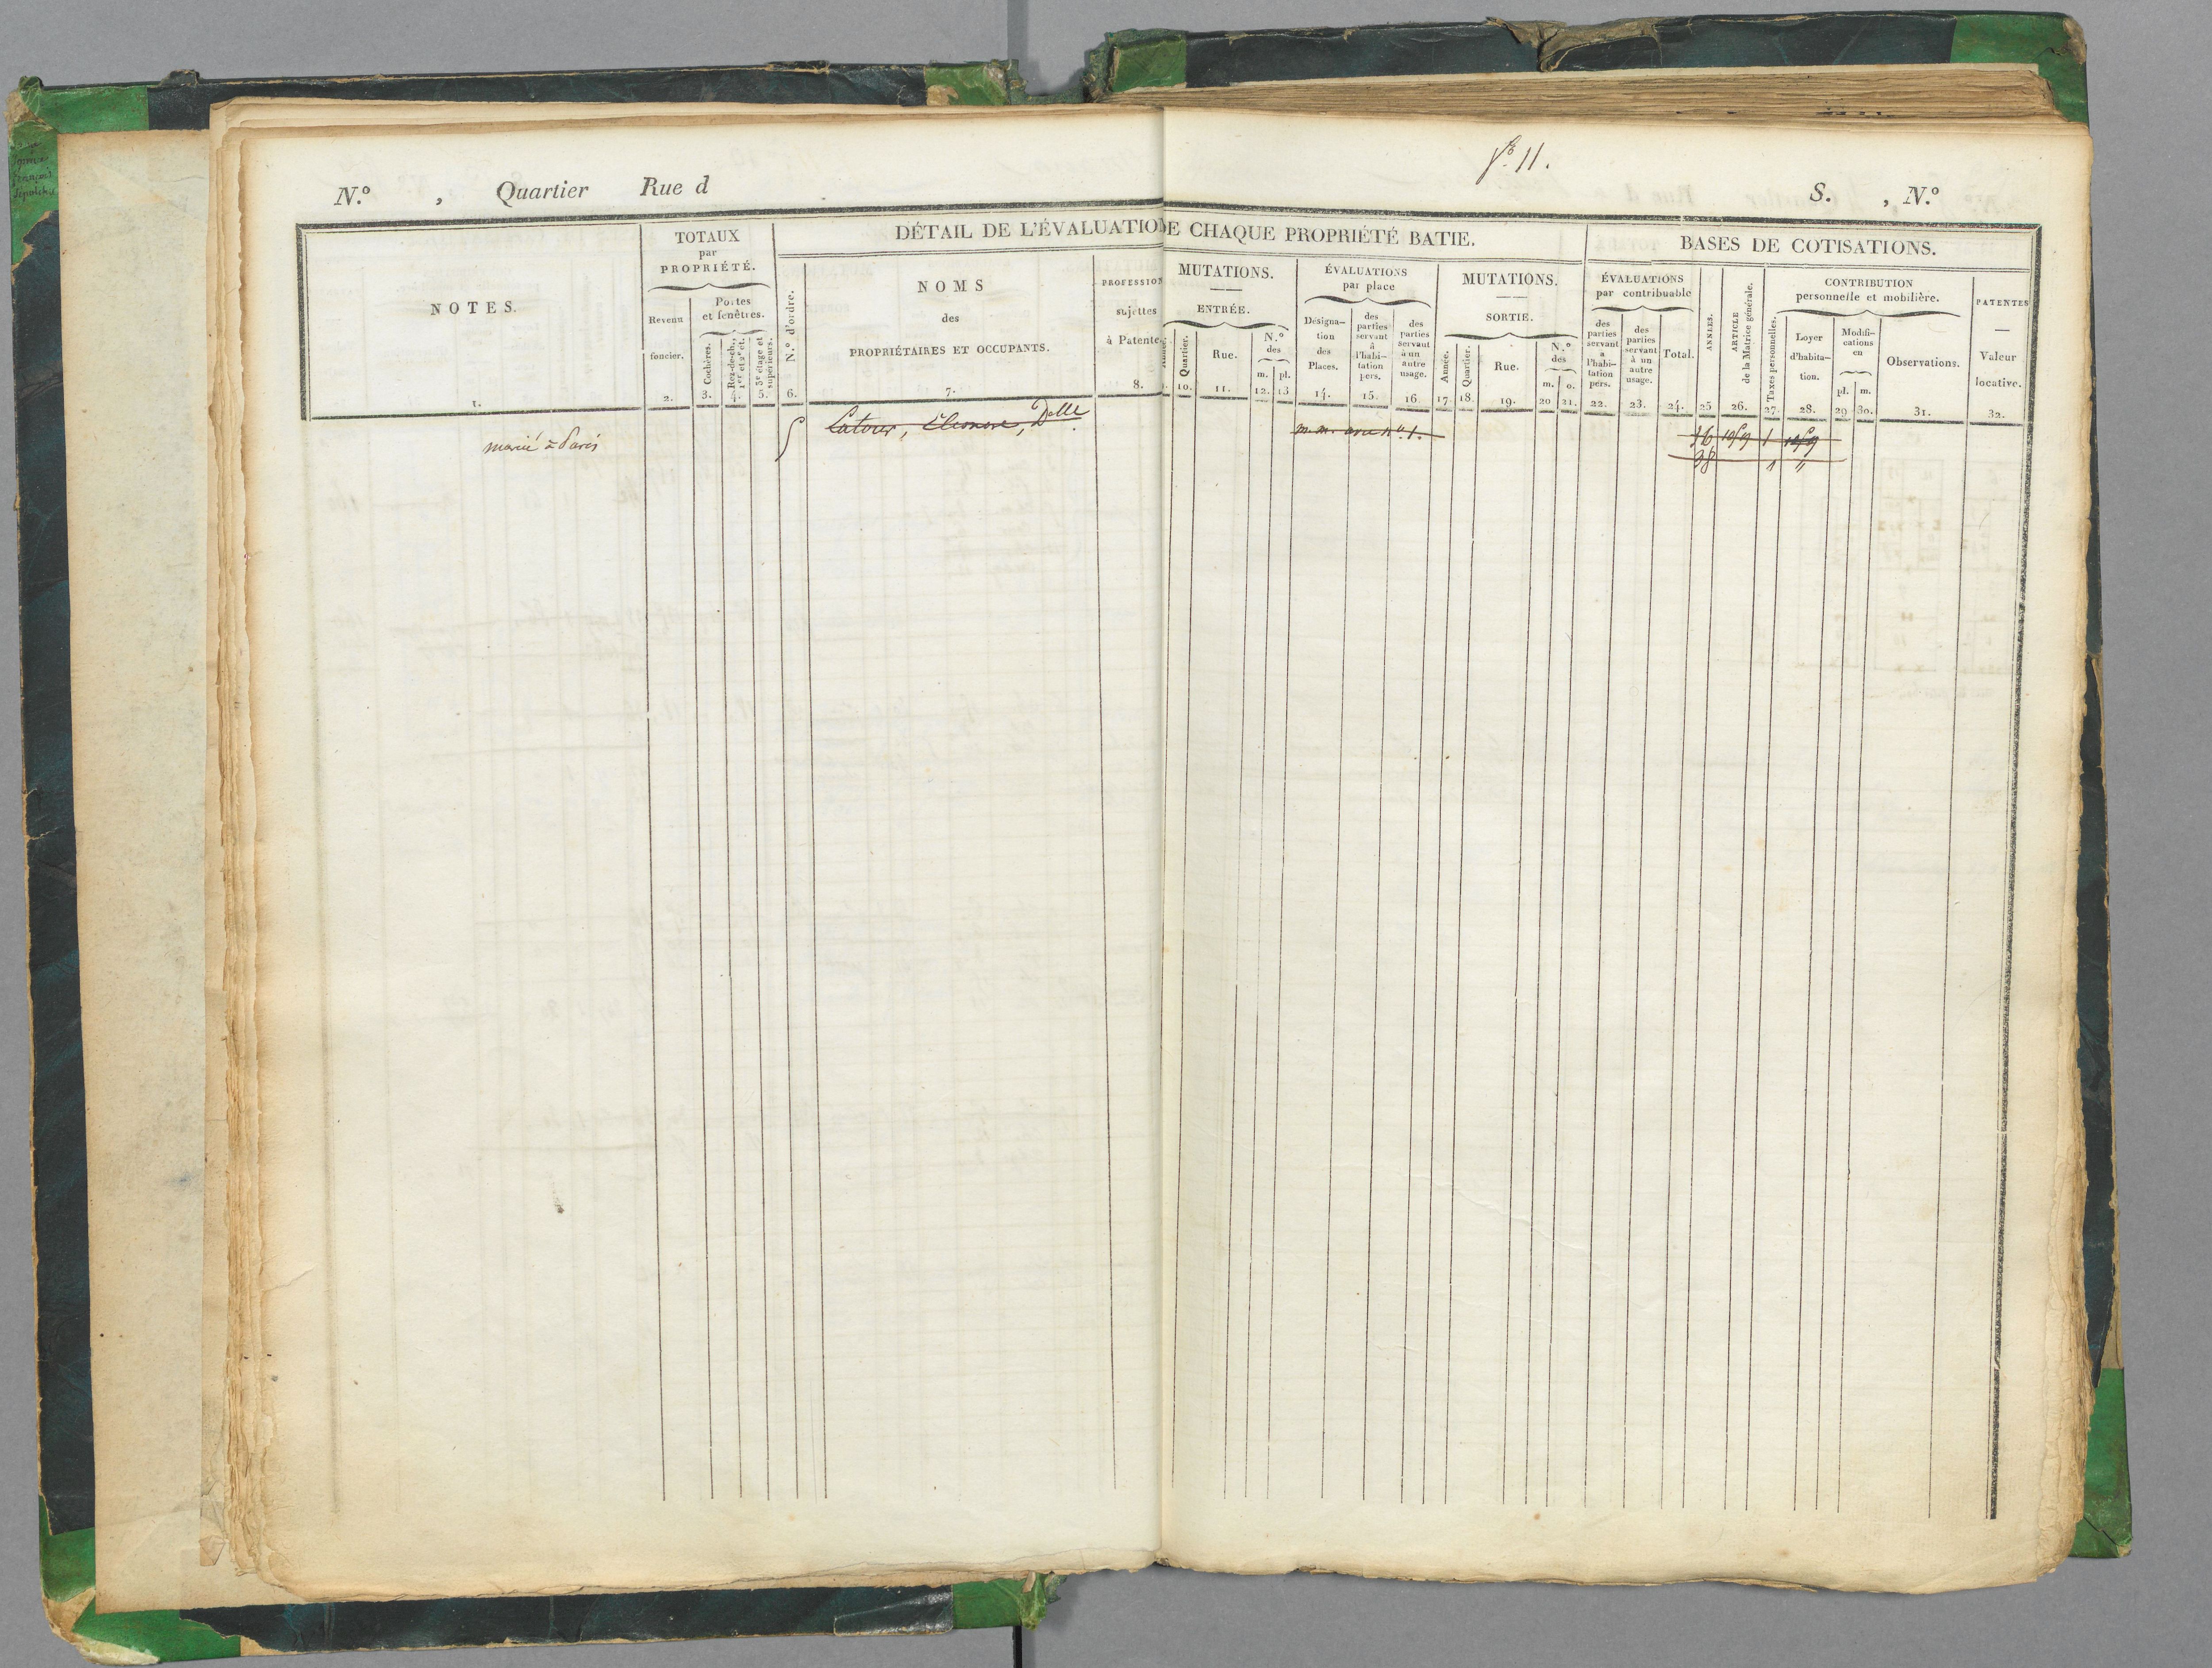 fo. 11.
N.o , Quartier Rue d
S. , N.o
DÉTAIL DE L'ÉVALUATIO DE CHAQUE PROPRIÉTÉ BATIE.
BASES DE COTISATIONS.
NOTES.
1.
TOTAUX
par
PROPRIÉTÉ.
Revenu
foncier.
2.
Portes
et fenêtres.
Cochères.
3.
Rez-de-ch.,
1er et 2e ét.
4.
3e étage et
supérieurs.
5.
N.o d'ordre.
6.
NOMS
des
PROPRIÉTAIRES ET OCCUPANTS.
7.
PROFESSION
sujettes
à Patente
8.
MUTATIONS.
ENTRÉE.
Quartier.
10.
Rue.
11.
N.o
des
m. pl.
12. 13
ÉVALUATIONS
par place
Désigna-
tion
des
Places.
14.
des
parties
servant
à
l'habi-
tation
pers.
15.
des
parties
servant
à un
autre
usage.
16.
MUTATIONS.
SORTIE.
Année.
17.
Quartier.
18.
Rue.
19.
N.o
des
m. o.
20 21.
ÉVALUATIONS
par contribuable
des
parties
servant
à
l'habi-
tation
pers.
22.
des
parties
servant
à un
autre
usage.
23.
Total.
24.
ANNÉES.
25
ARTICLE
de la Matrice générale.
26.
CONTRIBUTION
personnelle et mobilière.
Taxes personnelles.
27.
Loyer
d'habita-
tion.
28.
Modifi-
cations
en
pl. m.
29 30.
Observations.
31.
PATENTES
Valeur
locative.
32.
marié à Paris
Latour, Eleonore, Delle
m. m. avec no. 1.
36 1
38 1 "